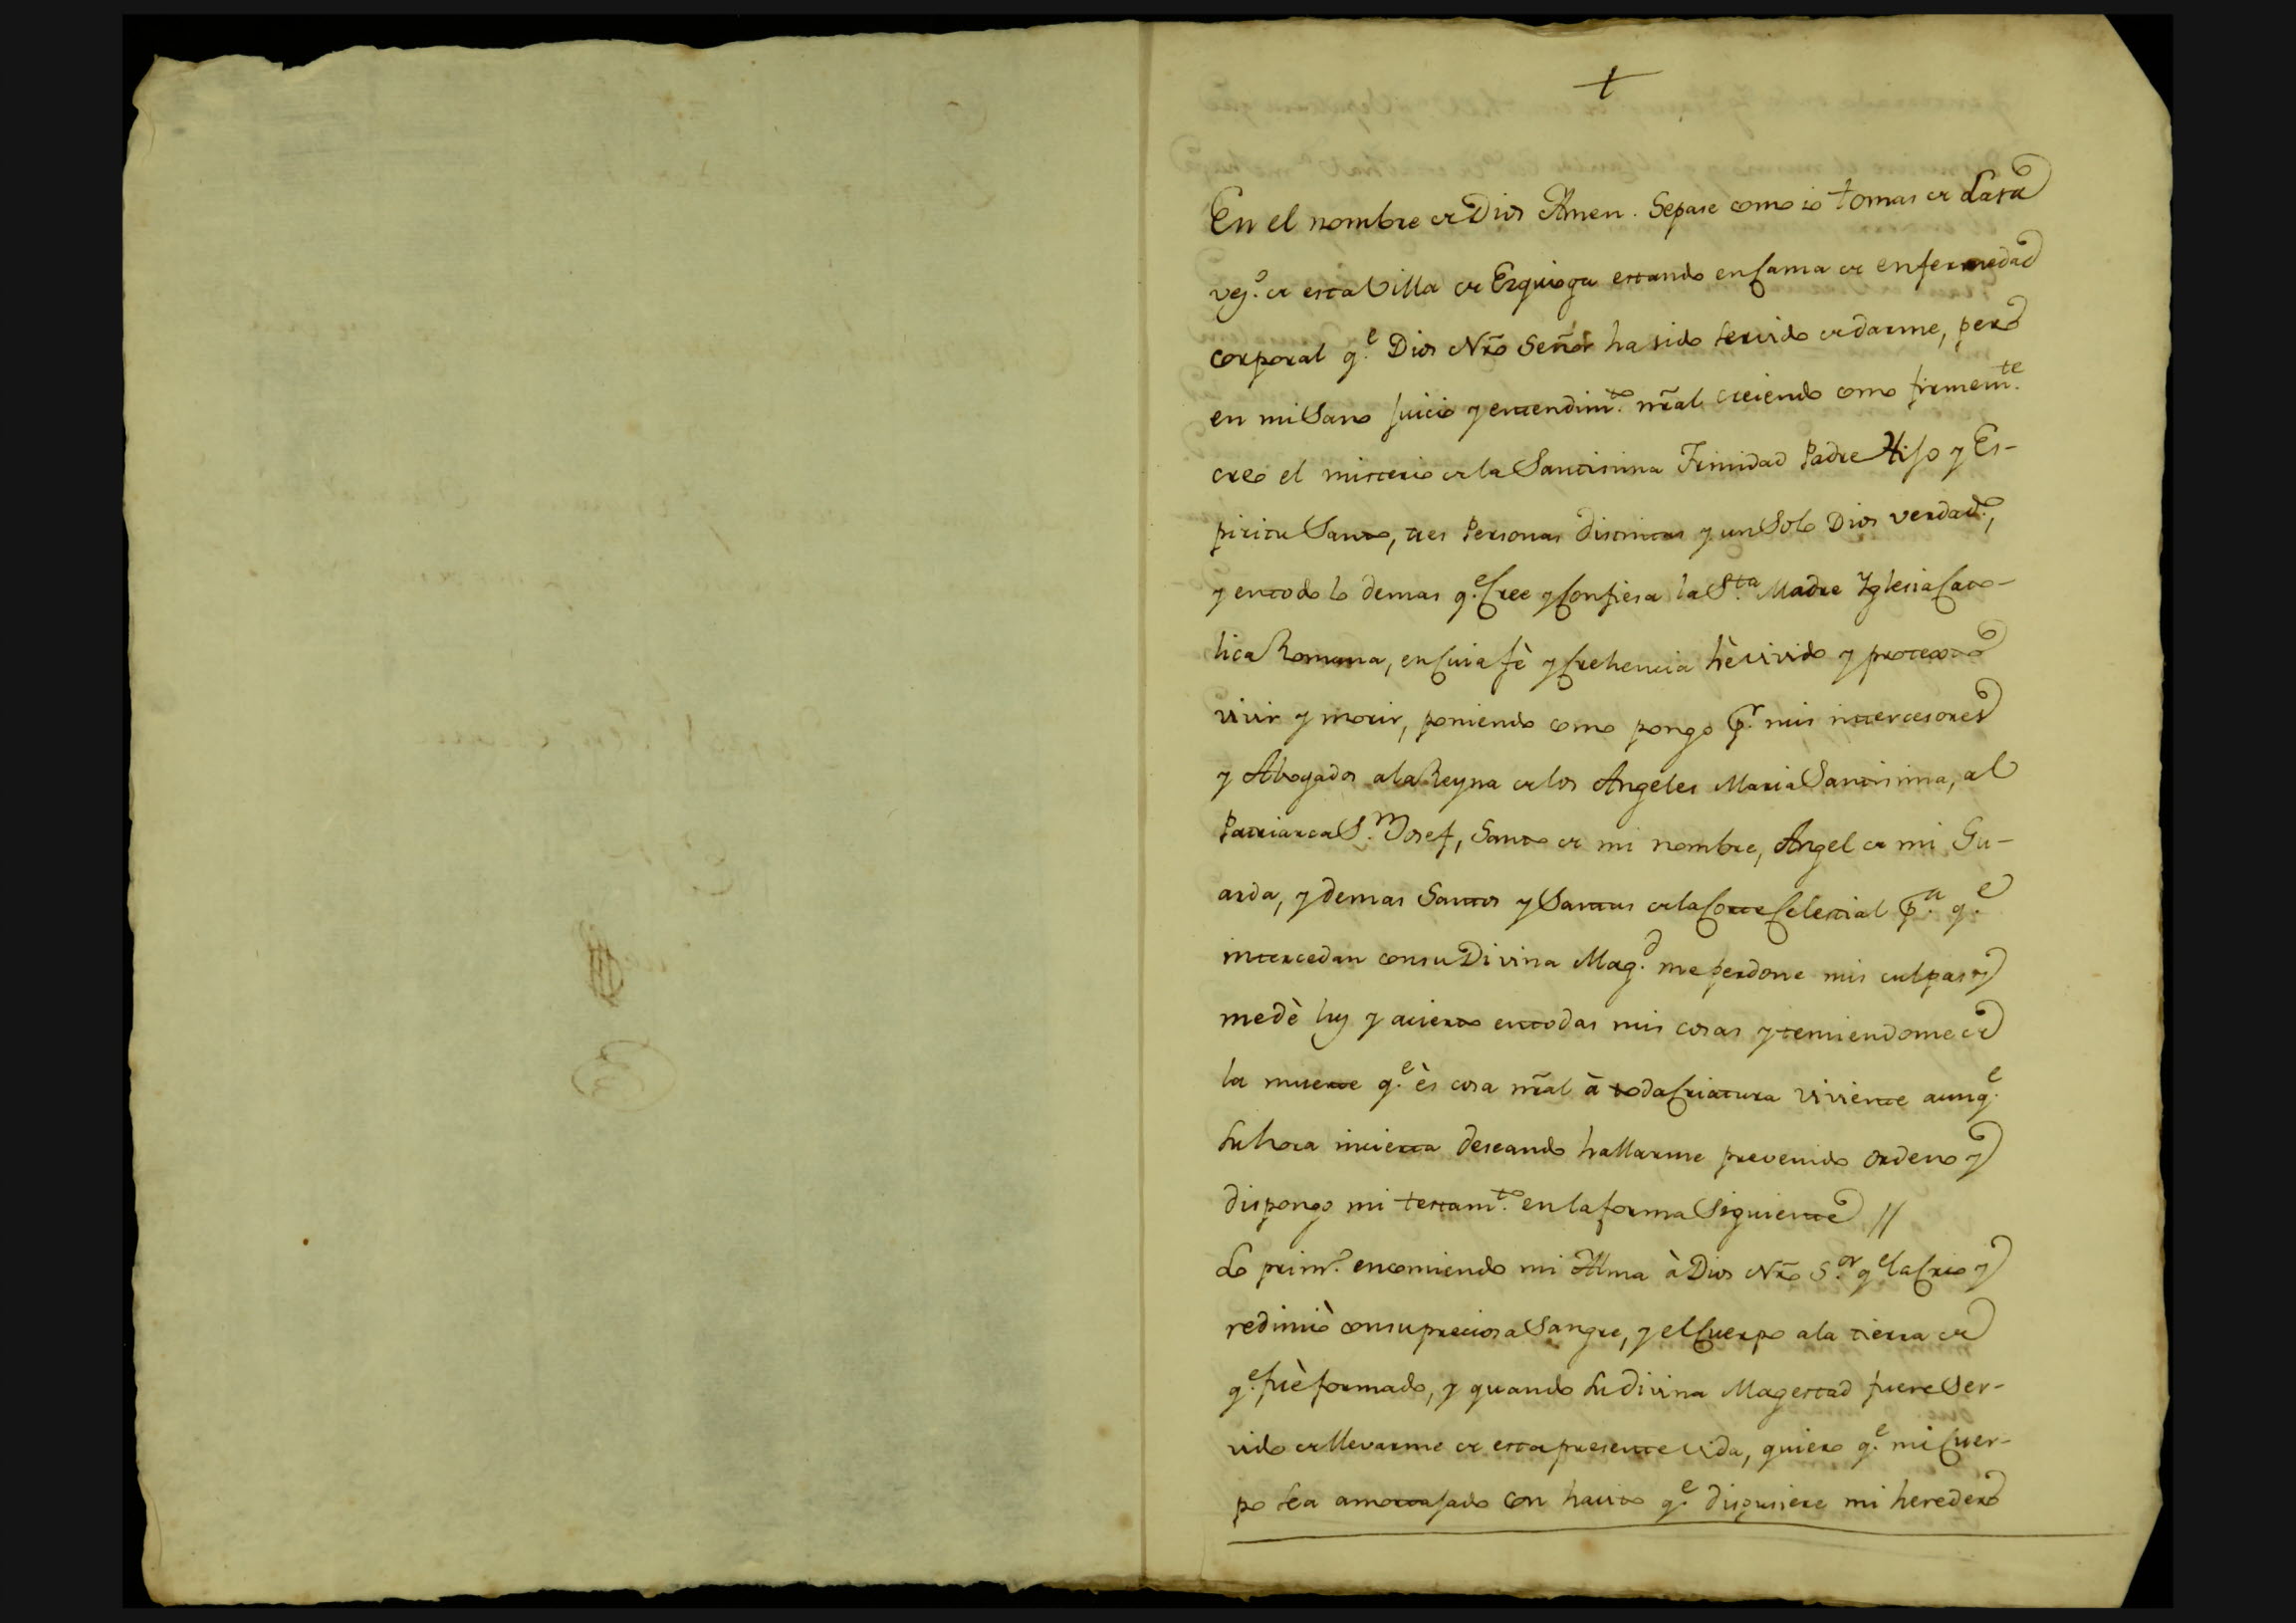 +
En el nombre de Dios Amen. Sepase como io tomas de Lasa
vez.º de esta Villa de Ezquioga estando en Cama de enfermedad
corporal q.e Dios Nr̃o Señor ha sido servido de darme, pero
en mi Sano Juicio y entendim.to nr̃al creiendo como firmem.te
creo el misterio de la Santisima Trinidad Padre Hijo y Es-
piritu Santo, tres Personas distintas y un Solo Dios verdad.o,
y en todo lo demas q.e Cree y Confiesa la S.ta Madre Yglesia Cato-
lica Romana, en Cuia fè y Crehencia hè vivido y protexto
vivir y morir, poniendo como pongo p.r mis intercesores
y Abogados a la Reyna de los Angeles Maria Santisima, al
Patriarca S.n Josef, Santo de mi nombre, Angel de mi Gu-
arda, y demas Santos y Santas de la Corte Celestial p.a q.e
intercedan con su Divina Mag.d me perdone mis culpas y
me dè luz y acierto en todas mis cosas y temiendome de
la muerte q.e ès cosa nr̃al à toda Criatura viviente aunq.e
su hora incierta deseando hallarme prevenido ordeno y
dispongo mi testam.to en la forma Siguiente //
Lo prim.o encomiendo mi Alma à Dios Nr̃o S.or q.e la Crio y
redimiò con su preciosa Sangre, y el Cuerpo a la tierra de
q.e fuè formado, y quando su Divina Magestad fuere Ser-
vido de llevarme de esta presente vida, quiero q.e mi Cuer-
po sea amortajado con havito q.e dispusiere mi heredero